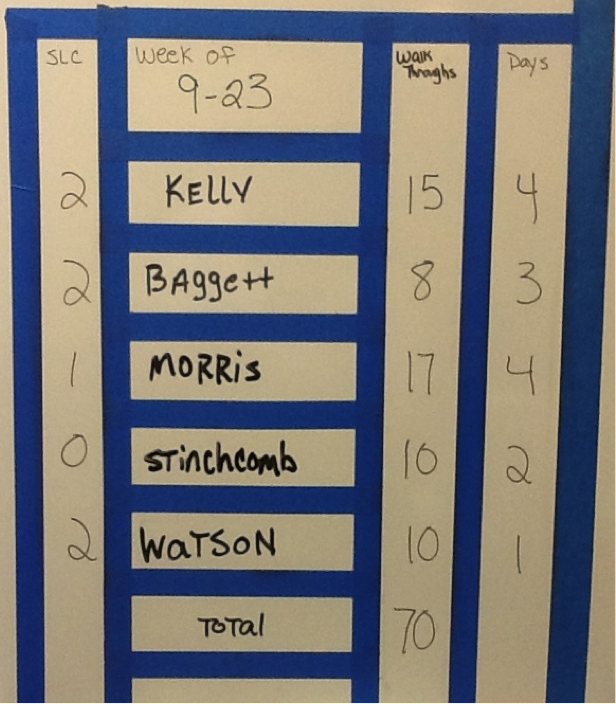 SLC Week of Walk Throghs Days
9-23
2 KELLY 15 4
2 BAggett 8 3
1 MORRis 17 4
0 STinchcomb 10 2
2 WaTSoN 10 1
ToTal 70